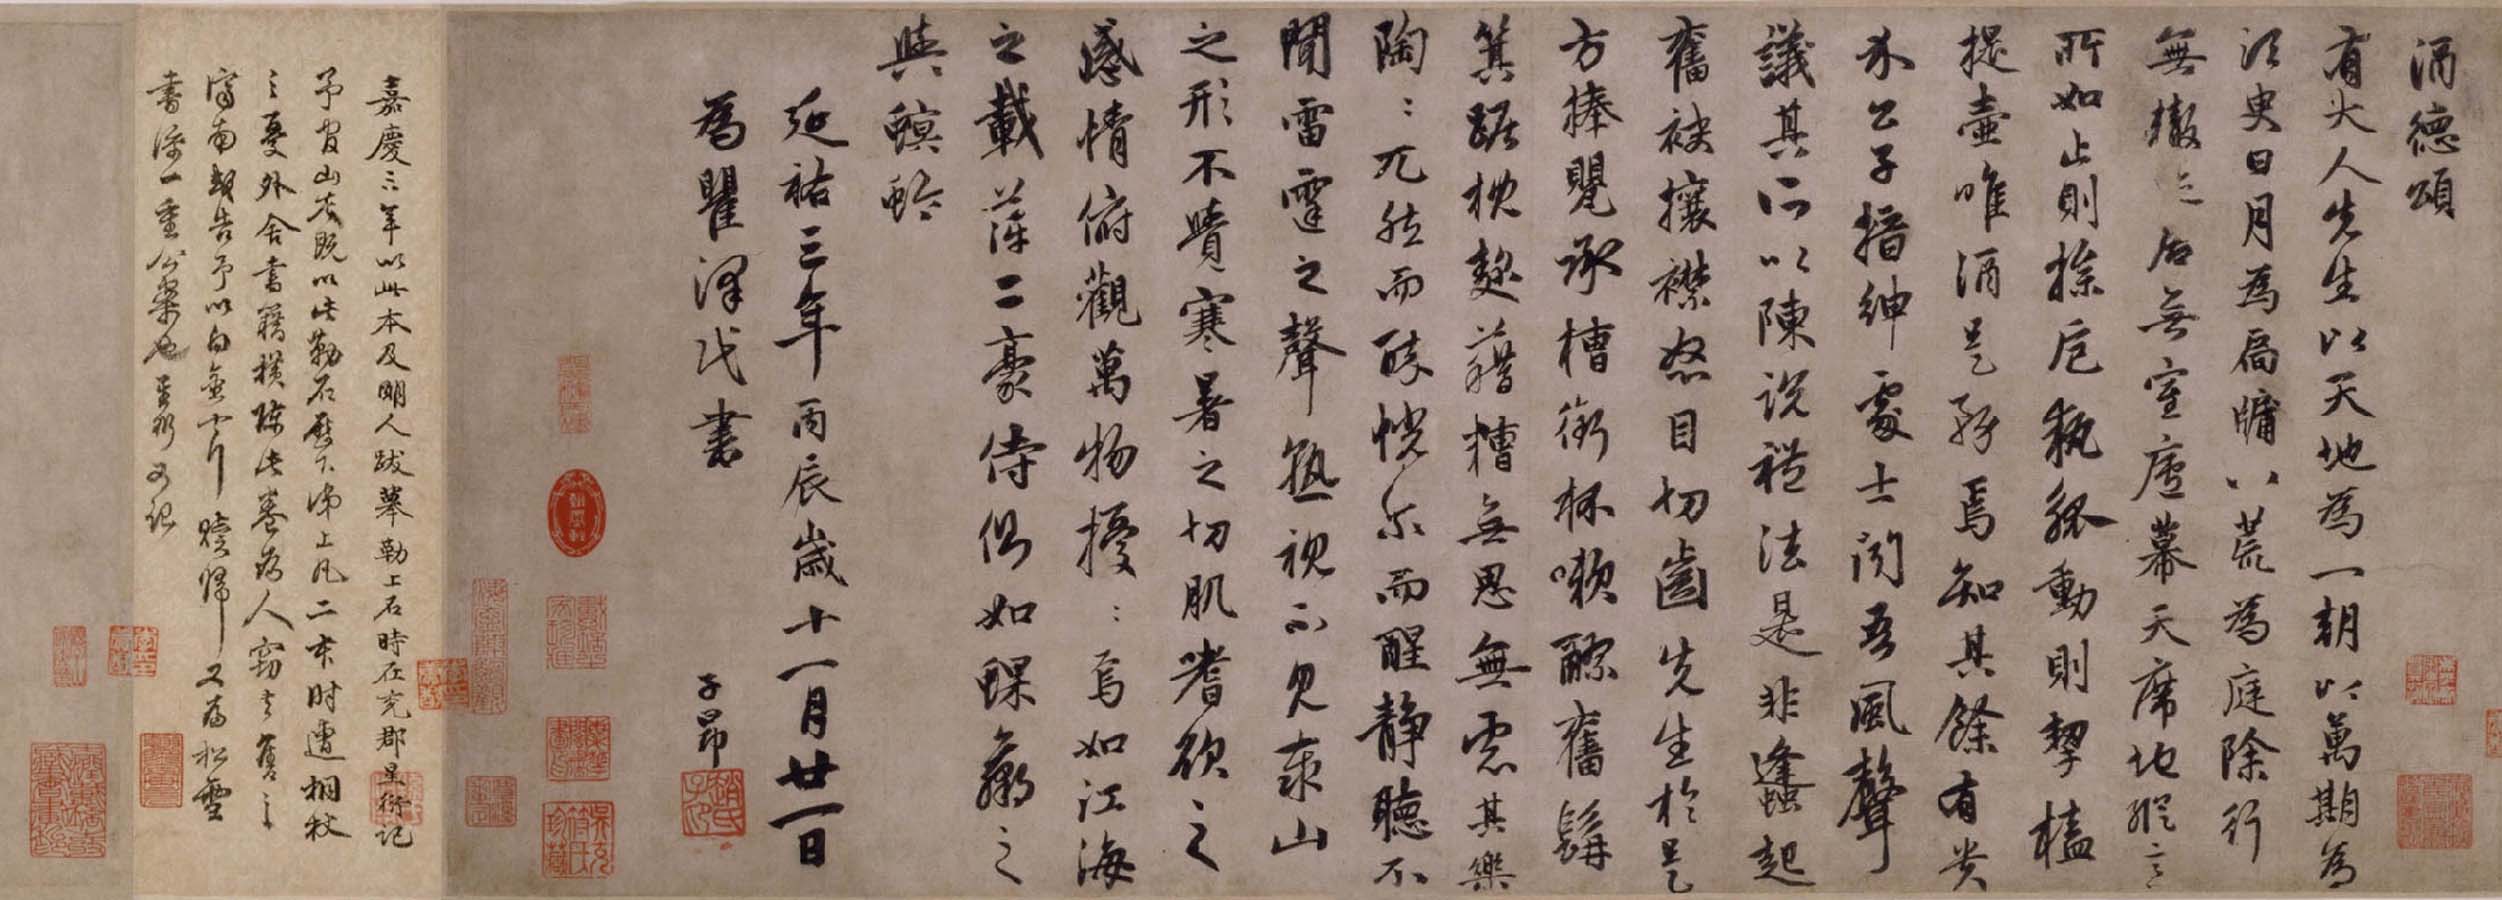 酒德頌
有大人先生以天地為一朝以萬期為
須臾日月為扃牖八荒為庭除行
無轍迹居無室廬幕天席地縱意
所如止則操卮執觚動則挈榼
提壺唯酒是務焉知其餘有貴
介公子搢紳處士聞吾風聲
議其所以陳說禮法是非蜂起
奮袂攘襟怒目切齒先生於是
方捧甖承槽銜杯嗽醪奮髯
箕踞枕麴藉糟無思無慮其樂
陶〻兀然而醉恍尔而醒静聽不
聞雷霆之聲熟視不見泰山
之形不覺寒暑之切肌嗜欲之
感情俯觀萬物擾〻焉如江海
之載萍二豪侍側如蜾蠃之
與螟蛉
延祐三年丙辰歲十一月廿一日
為瞿澤民書
子昂
嘉慶六年以此本及明人跋摹勒上石時在兗郡星衍記
予官山左既以此勒石 上凡二本时遭桐杖
之憂外舍書籍橫陳此卷為人竊去舊之
南 告予以白金 贖歸又為松雪
書添一重公案也星衍又記